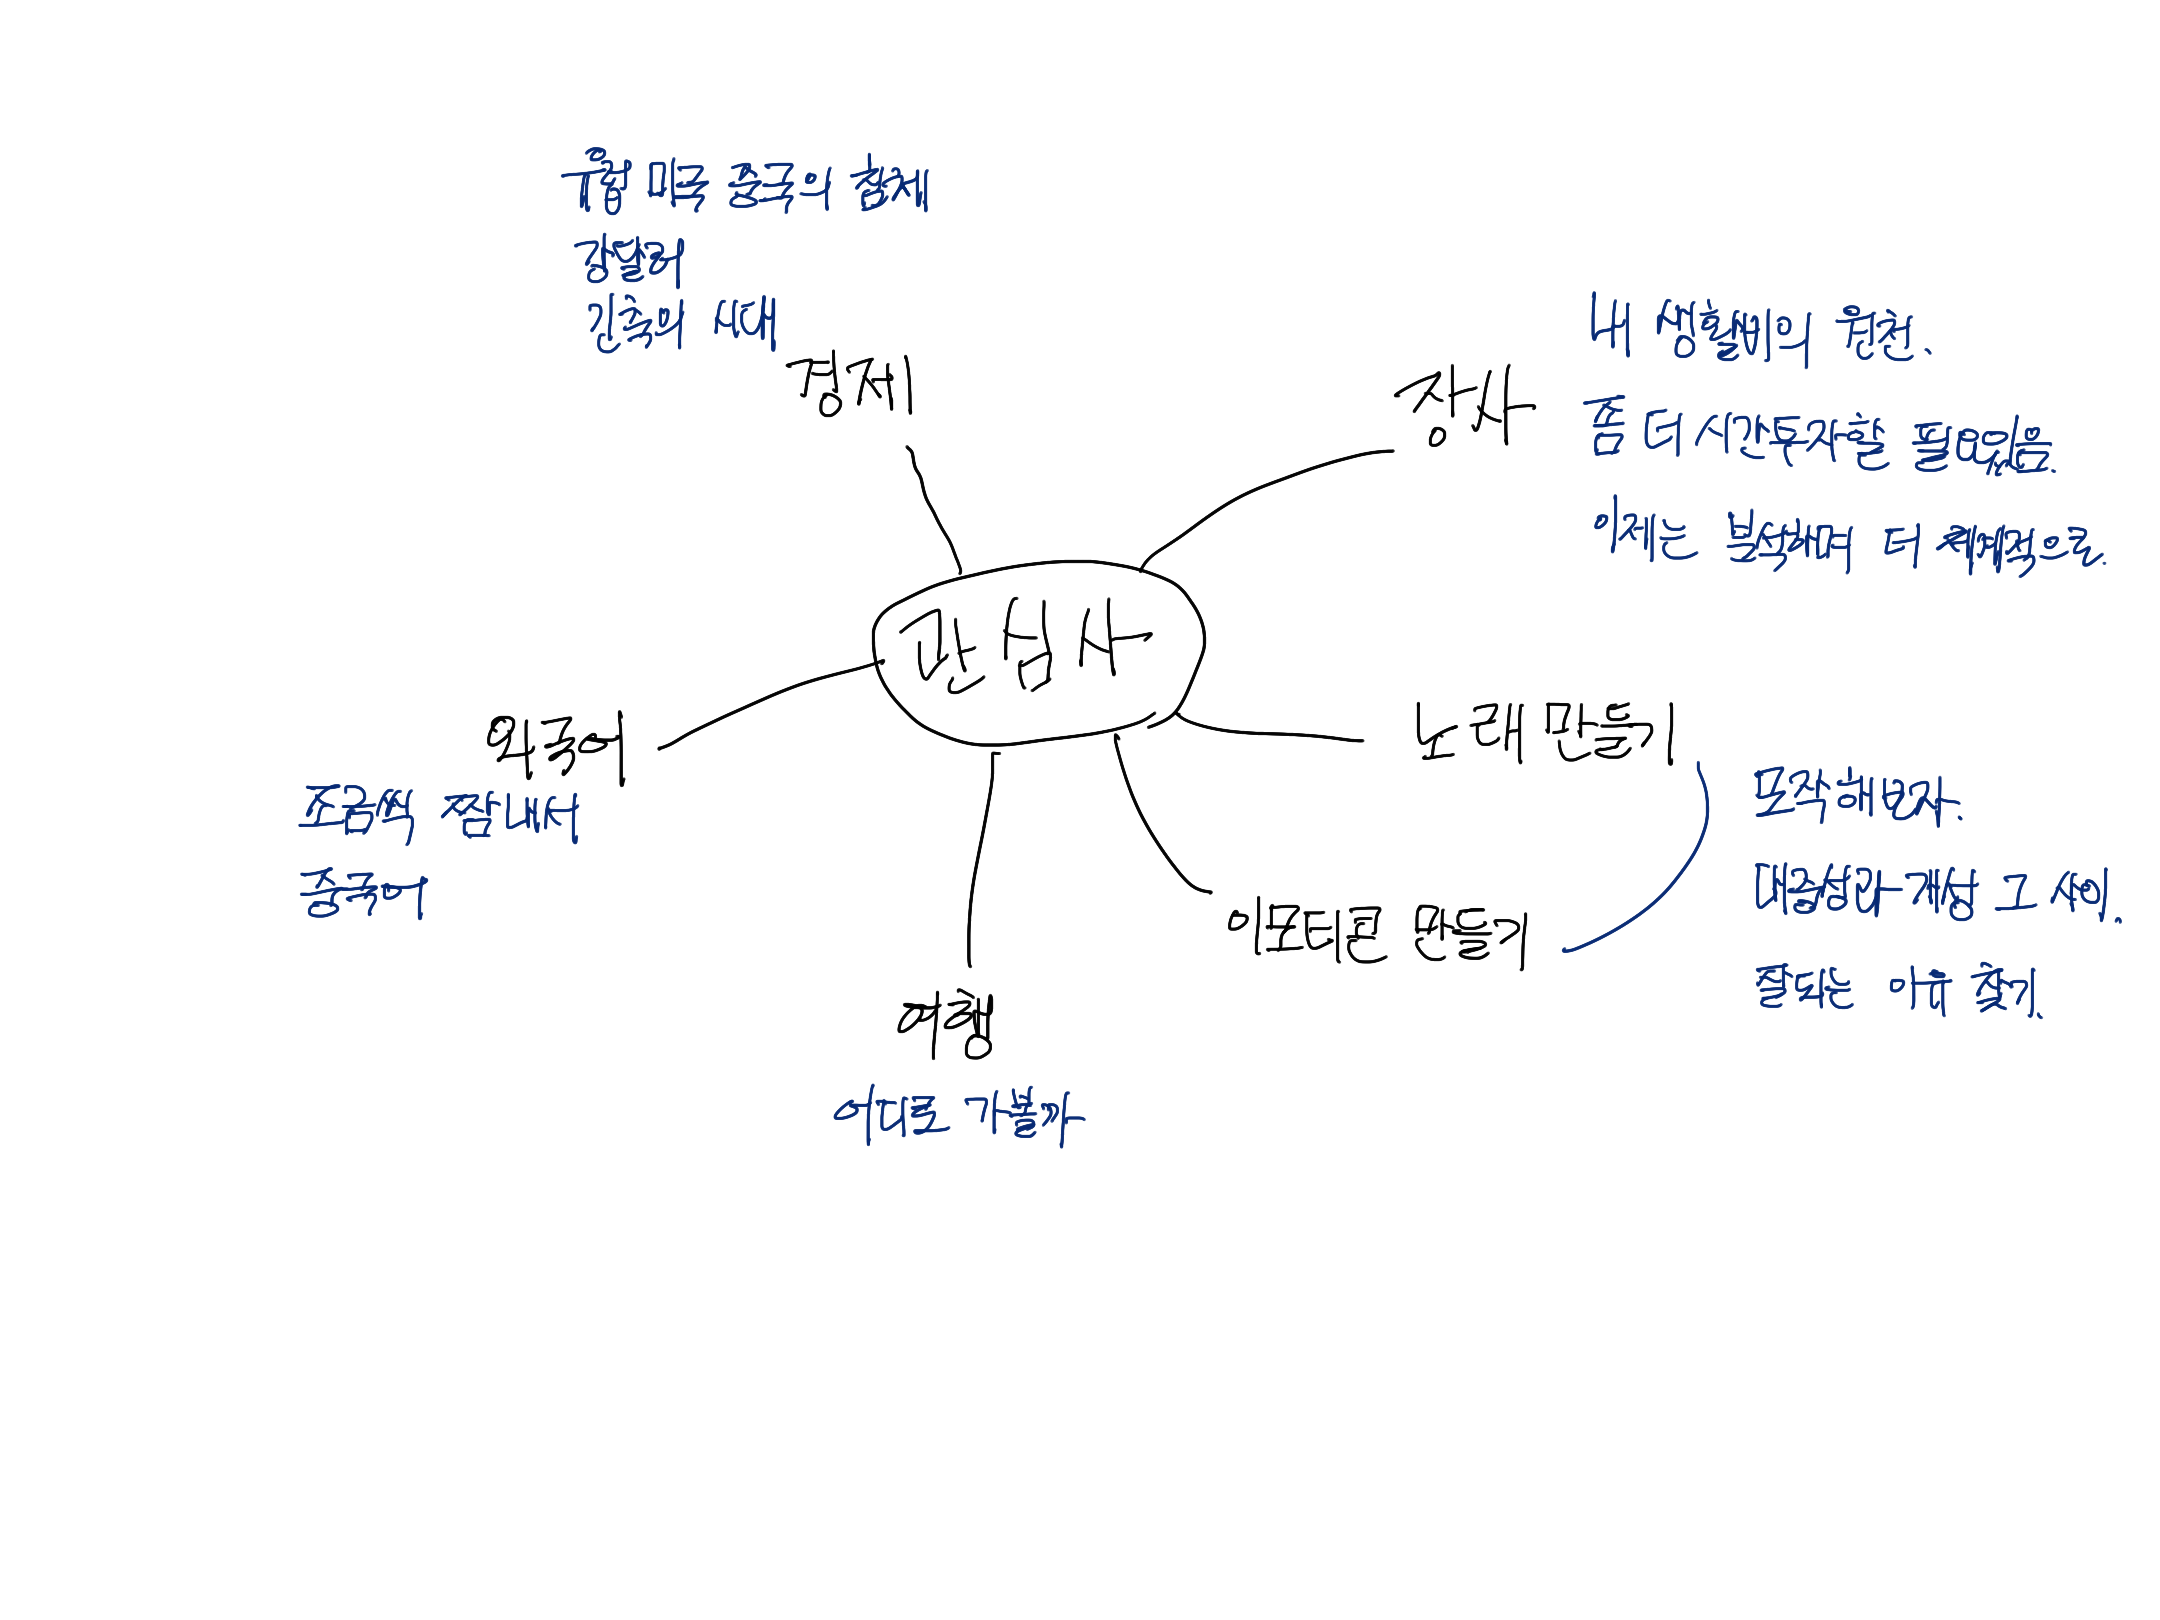 유럽 미국 중국의 침체
강달러
긴축의 시대
경제
장사
내 생활비의 원천.
좀 더 시간투자할 필요있음.
이제는 분석하며 더 체계적으로.
관심사
외국어
조금씩 짬내서
중국어
노래 만들기
모작해보자.
대중성과 개성 그 사이.
잘되는 이유 찾기.
이모티콘 만들기
여행
어디로 가볼까